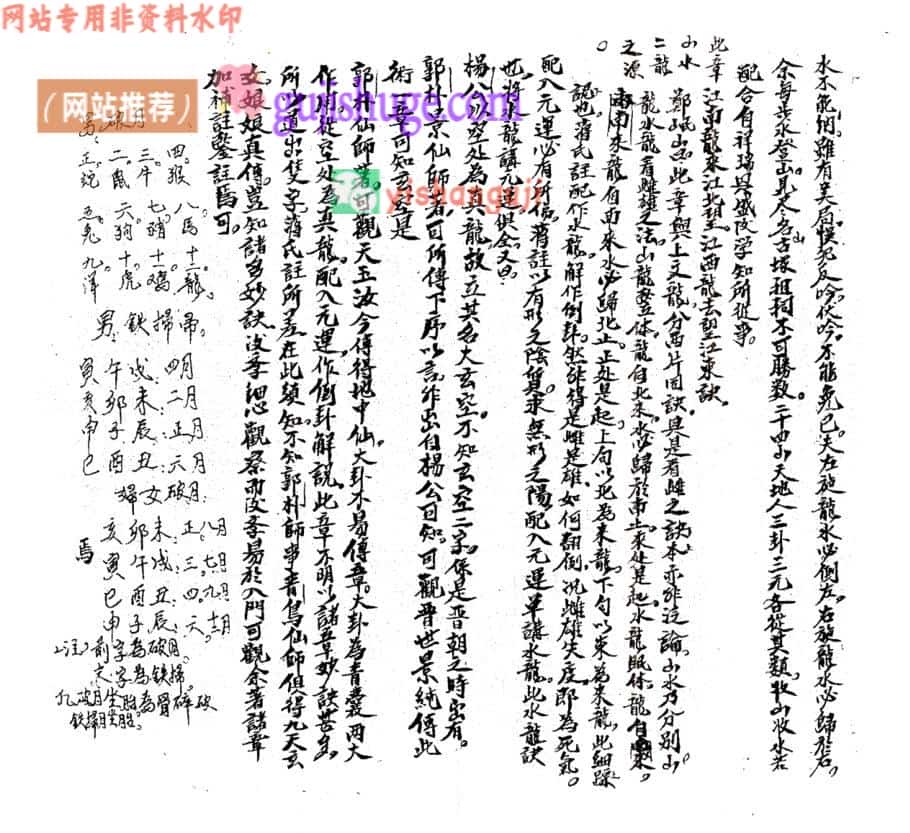 网站专用非资料水印
（网站推荐）
gujishuge.com
yishanguji
水不範綱。雖有美局。悮犯反吟。伏吟。不能免已。夫左旋龍水必倒左。右旋龍水必歸於右。
余每步水登山。見名山古塚祖祠不可勝数。二十四山天地人三卦三元各從其類。收山收水若
配合自祥瑞昌盛。後学知所從事。
此章
山水
二龍
之源
江南龍來江北望。江西龍去望江東訣
鄭山
此章與上文龍分两片同訣。具是看雌之訣本亦
論。山水乃分別。山
龍水龍看雌雄之法。山龍竪体龍自北來水必歸於南止。來處是起。水龍眠体。龍自
來。
南來龍自南來水必歸北止。止處是起。上句以北為來龍。下句以東為來龍。此細踩
認也。蒋氏註配作水龍解作倒卦。然
得是雌是雄如何翻倒。況雌雄失度。即為死氣。
配入元運必有所傷。蒋註以有形之陰質求無形之陽。配入元運單講水龍。此水龍訣
也。將
龍講元
俱全。又曰
楊公以空處為真龍。故立其名大玄空。不知玄空二字。係是晋朝之時出有。
郭朴景仙師著。可所傳下序以言作出自楊公可知。可觀晋世景純傳此
術。吾可知玄空是
郭朴仙師著。可觀天玉汝今傳得地中仙。大卦不易傳章。大卦為青囊两大
作用。從空處為真龍。配入元運。作倒卦解說。此章不明以諸章妙訣甚多。
所少道出隻字。蒋氏註所差在此須知。不知郭朴師事青烏仙師但得九天玄
女娘娘真傳。豈知諸多妙訣。後季細心觀察。而後季易於入門可觀余著諸章
加補註鑒註焉可。
男：破月
正。蛇 二。鼠 三。牛 四。猴
五。兔 六。狗 七。猪 八。馬
九。洋 十。虎 十一。鷄 十二。龍
男：鉄掃帚。
寅午戌：四月
亥卯未：二月
申子辰：正月
巳酉丑：六月
婦女破月：
亥卯未：正。八月
寅午戌：三。七月
巳酉丑：四。九月
申子辰：六。十二月
焉
注：前字為破月
次字為鉄掃
凡破月生胎為骨碎破
鉄掃